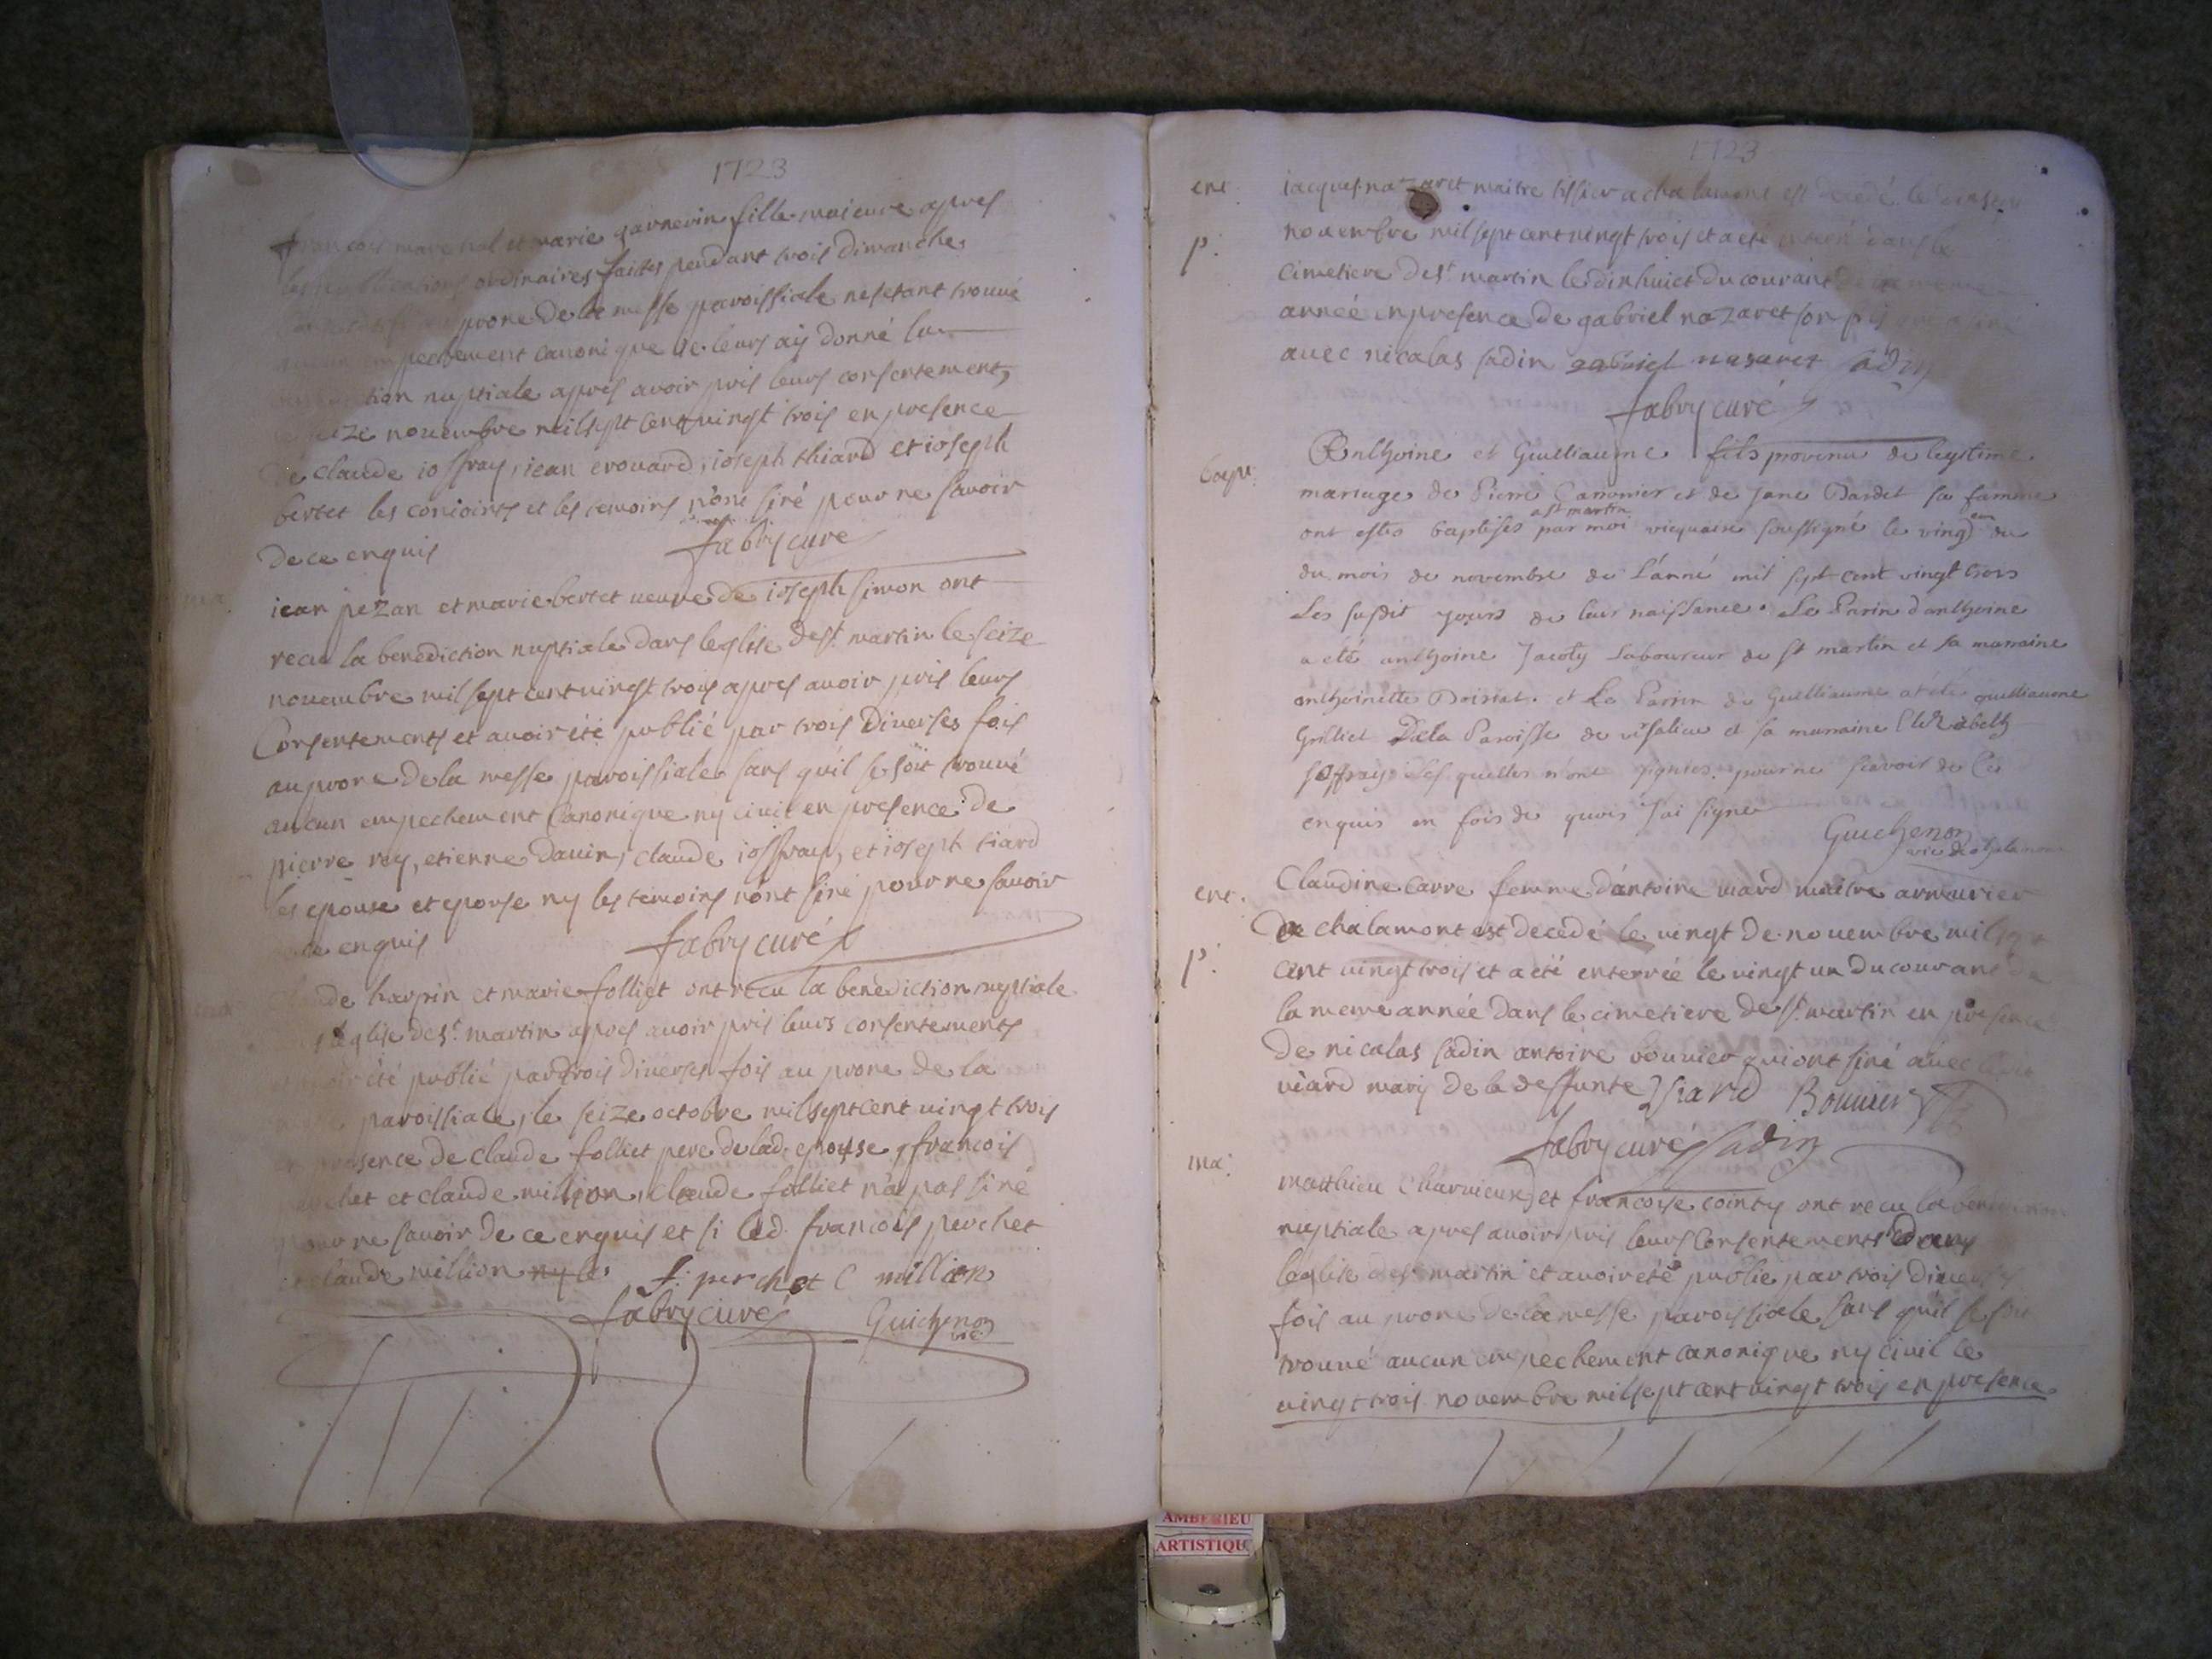 1723
francois marechal et marie garnerin fille maieure apres
les publications ordinaires faites pendant trois dimanches
prone de la messe paroissiale ne setant trouué
empechement canonique ie leurs aÿ donné la
nuptiale apres avoir pris leurs consentement,
seize nouembre mil sept cent vingt trois en presence
de claude ioffray, iean erouard, ioseph thiard et ioseph
bertet les conioints et les temoins n'ont siné pour ne savoir
de ce enquis fabry curé
iean pezan et marie bertet veuve de ioseph simon ont
recu la benediction nuptiale dans leglise de st martin le seize
nouembre mil sept cent vingt trois apres auoir pris leurs
Consentements et auoir été publié par trois diverses fois
au prone de la messe paroissiale sans qu'il se soit trouué
aucun empechement Canonique ny ciuil en presence de
pierre rey, etienne dauin, claude ioffray, et ioseph tiard
les epoux et epouse ny les temoins n'ont siné pour ne sauoir
de ce enquis fabry curé
harpin et marie folliet ont recu la benediction nuptiale
leglise de st martin apres auoir pris leurs consentements
été publié par trois diverses fois au prone de la
paroissiale, le seize octobre mil sept cent vingt trois
presence de claude folliet pere de lad. epouse, francois
perchet et claude million, claude folliet n'a pas siné
pour ne sauoir de ce enquis et si led. francois perchet
claude million ny les f. perchet C million
fabry curé Guichenon
vic.
1723
ent. iacques nazaret maitre tissier a chalamont est decedé le
p. nouembre mil sept cent vingt trois et a eté enterré dans le
cimetiere de st martin le dix huict du courant
année en presence de gabriel nazaret son
auec nicolas sadin gabriel nasaret sadin
fabry curé
bapt. Anthoine et Guilliaume fils provenu de legitime
mariage de Pierre Cannonier et de Jane Dardet sa famme
a st martin
ont estes baptises par moi vicquaire soussigné le vingt du
du mois de novembre de L'anné mil sept cent vingt trois
Les susdit jours de leur naissance. Le Parin d'anthoine
a eté anthoine Jacoty Laboureur de st martin et sa marraine
anthoinette et Le Parin de Guilliaume a été guilliaume
Grilliet De la Paroisse de et sa marraine
Joffray Les quelles n'ont signées pour ne scavoir de Ce
enquis en fois de quois J'ai signe
Guichenon
vic de chalamont
ent. Claudine Carre femme d'antoine viard maitre armurier
de chalamont est decedé le vingt de nouembre mil sept
p. cent vingt trois et a eté enterrée le vingt un du courant de
la meme année dans le cimetiere de st martin en presence
de nicolas sadin antoine bouuier qui ont siné auec
viard mary de la deffunte Viard Bouuier
fabry curé Sadin
ma. matthieu Charuieux et francoise cointy ont recu la benediction
nuptiale apres auoir pris leurs Consentements dans
leglise de st martin et auoir eté publié par trois diuerses
fois au prone de la messe paroissiale sans qu'il se soit
trouué aucun empechement canonique ny ciuil le
vingt trois nouembre mil sept cent vingt trois en presence
AMBERIEU
ARTISTIQU